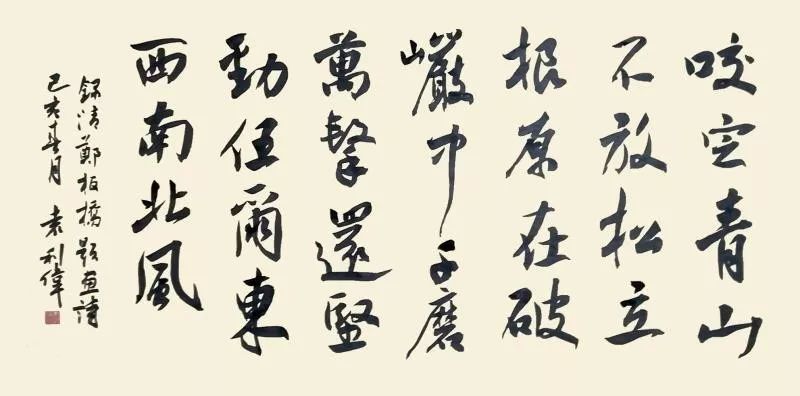 咬定青山
不放松立
根原在破
巖中千磨
萬擊還堅
勁任爾東
西南北風
錄清鄭板橋題画詩
己亥春月 袁利偉